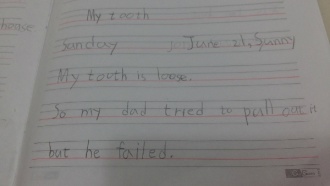 house
My tooth
Sunday , June 21, Sunny
My tooth is loose.
So my dad tried to pull out it
but he failed.